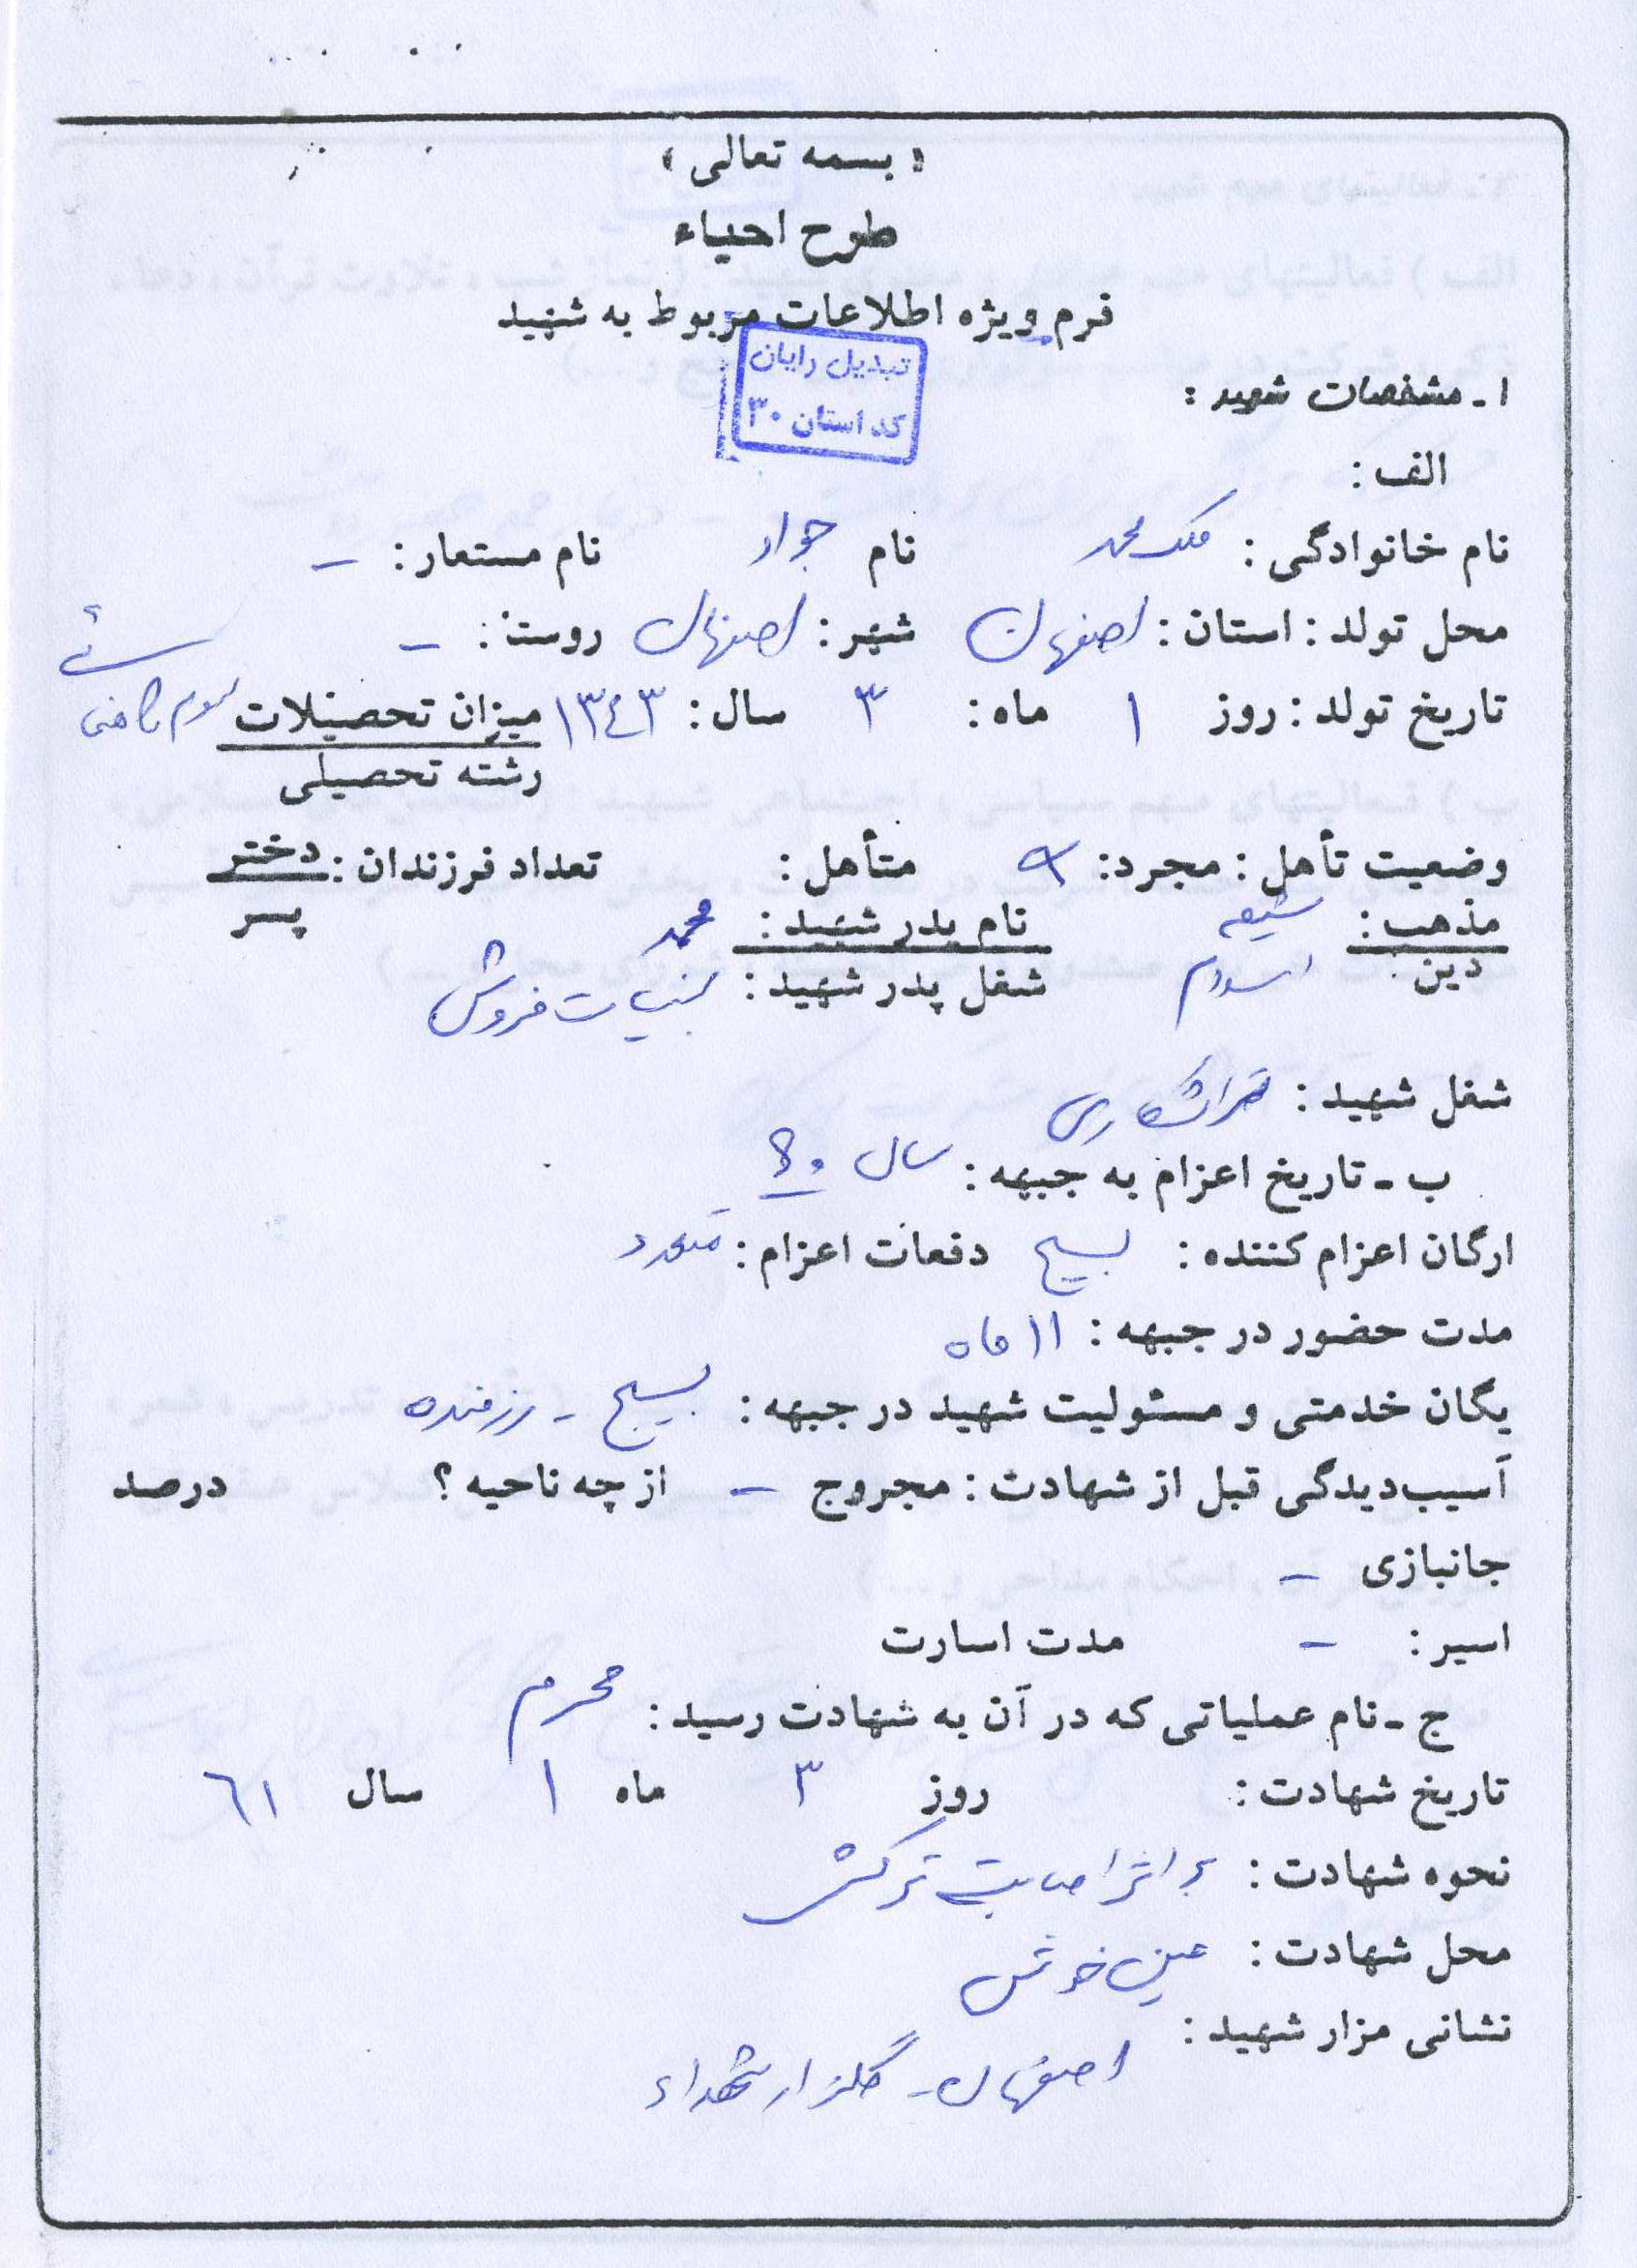 « بسمه تعالی »
طرح احیاء
فرم ویژه اطلاعات مربوط به شهید
تبدیل رایان
کد استان ۳۰
۱ـ مشخصات شهید :
الف :
نام خانوادگی : ملک محمد نام جواد نام مستعار : -
محل تولد : استان : اصفهان شهر : اصفهان روستا : -
تاریخ تولد : روز ۱ ماه : ۳ سال : ۱۳٤۳ میزان تحصیلات سوم راهنمایی
رشته تحصیلی
وضعیت تأهل : مجرد : متأهل : تعداد فرزندان : دختر
پسر
مذهب : شیعه نام پدر شهید : محمد
دین : اسلام شغل پدر شهید : لبنیات فروش
شغل شهید : تراشکاری
ب ـ تاریخ اعزام به جبهه : سال ۶۰
ارگان اعزام کننده : بسیج دفعات اعزام : متعدد
مدت حضور در جبهه : ۱۱ ماه
یگان خدمتی و مسئولیت شهید در جبهه : بسیج - رزمنده
آسیب‌دیدگی قبل از شهادت : مجروح - از چه ناحیه ؟ درصد
جانبازی -
اسیر : - مدت اسارت
ج ـ نام عملیاتی که در آن به شهادت رسید : محرم
تاریخ شهادت : روز ۳ ماه ۱ سال ٦۱
نحوه شهادت : بر اثر اصابت ترکش
محل شهادت : عین خوش
نشانی مزار شهید :
اصفهان - گلزار شهداء